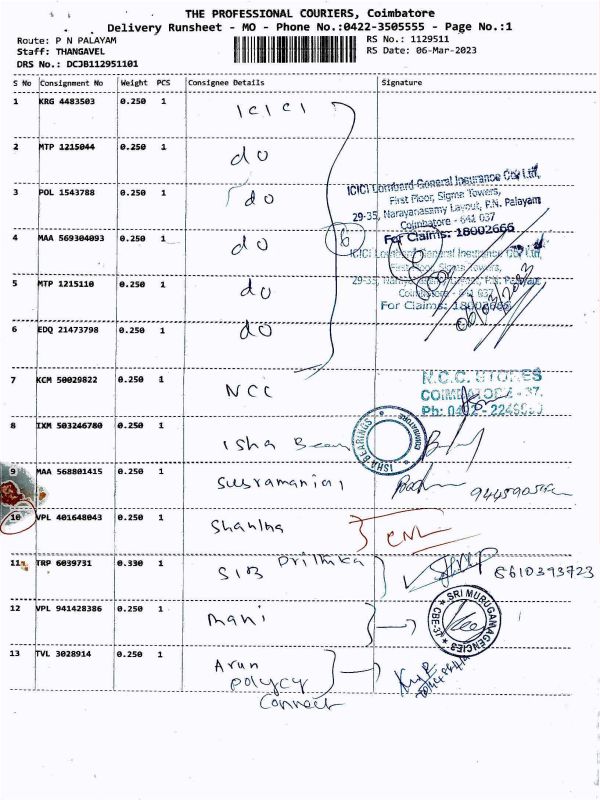 THE PROFESSIONAL COURIERS, Coimbatore
Delivery Runsheet - MO - Phone No.:0422-3505555 - Page No.:1
Route: P N PALAYAM RS No.: 1129511
Staff: THANGAVEL RS Date: 06-Mar-2023
DRS No.: DCJB112951101
S No Consignment No Weight PCS Consignee Details Signature
1 KRG 4483503 0.250 1 ICICI
2 MTP 1215044 0.250 1 do
3 POL 1543788 0.250 1 do
ICICI Lombard General Insurance Co. Ltd,
First Floor, Sigma Towers,
29-35, Narayanasamy Layout, P.N. Palayam
Coimbatore - 641 037
For Claims: 18002666
4 MAA 569304093 0.250 1 do
6
ICICI Lombard General Insurance Co. Ltd,
First Floor, Sigma Towers,
29-35, Narayanasamy Layout, P.N. Palayam
Coimbatore - 641 037
For Claims: 18002666
06/03/2023
5 MTP 1215110 0.250 1 do
6 EDQ 21473798 0.250 1 do
7 KCM 50029822 0.250 1 NCC
N.C.C. STORES
COIMBATORE - 37.
Ph: 0422 -
8 IXM 503246780 0.250 1 Isha
ISHA BEARINGS
COIMBATORE
9 MAA 568801415 0.250 1
10 VPL 401648043 0.250 1
11 TRP 6039731 0.330 1 8610393723
12 VPL 941428386 0.250 1 mani
SRI MURUGAM AGENCIES
CBE-37
13 TVL 3028914 0.250 1 Arun
polycy
Connect